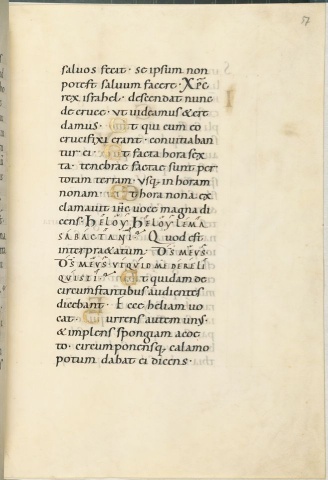 57
saluos fecit · se ipsum non
potest saluum facere · Xp̄c
rex israhel · descendat nunc
de cruce · ut uideamus & cre
damus · Et qui cum eo
crucifixi erant · conuitiaban
tur ei · Et facta hora sex
ta · tenebrae factae sunt per
totam terram · usq; in horam
nonam · Et hora nona ex
clamauit ih̄c uoce magna di
cens · HELOY HELOY LEMA
SABACTANI · Quod est
interpraetatum · D̄S MEUS
D̄S MEUS UT QUID ME DERELI
QUISTI · Et quidam de
circumstantibus audientes
dicebant · Ecce heliam uo
cat · Currens autem unus ·
& implens spongiam aceto
to · circumponensq; calamo
potum dabat ei dicens ·